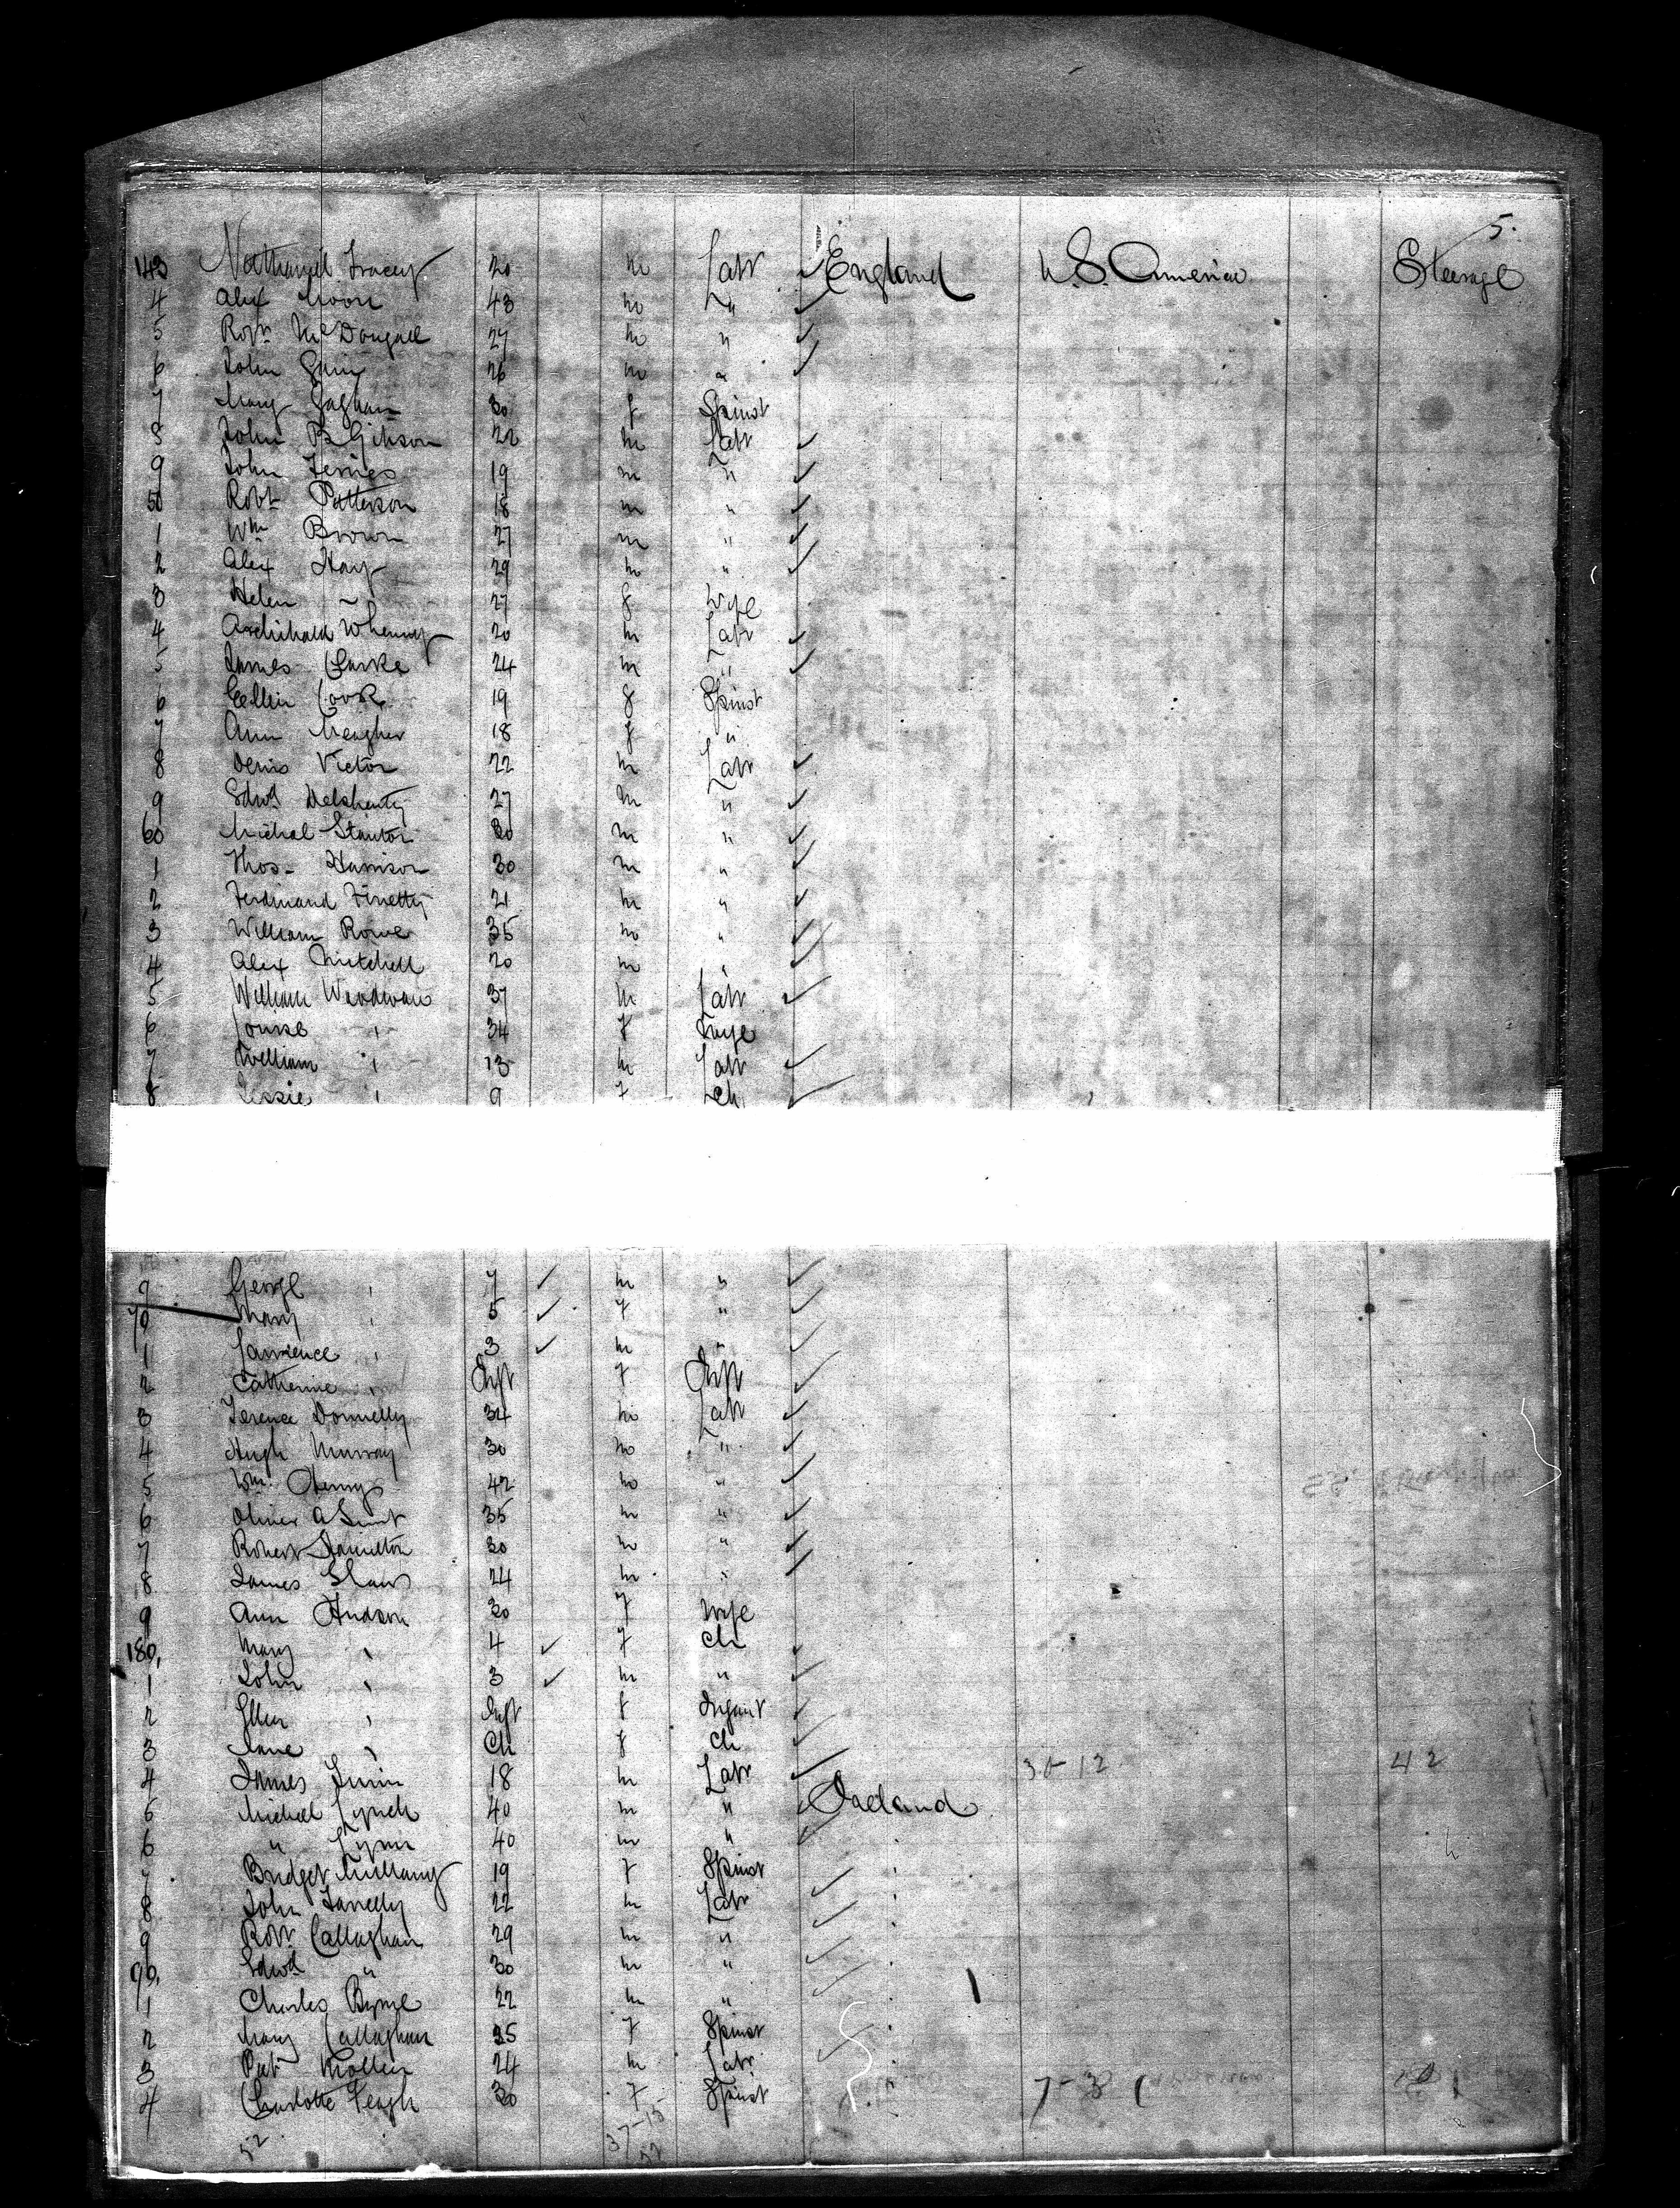 5.
143 Nathaniel Tracey 20 m Labr England U.S. America Steerage
4 Alex Moon 43 m "
5 Robt McDougall 27 m "
6 John 26 m "
7 Mary Gaghan 30 f Spinst
8 John B Gibson 22 m Labr
9 John 19 m "
50 Robt Patterson 18 m "
1 Wm Brown 27 m "
2 Alex Hay 29 m "
3 Helen " 27 f Wife
4 Archibald 20 m Labr
5 James Clarke 24 m "
6 Ellen Cook 19 f Spinst
7 Ann Meagher 18 f "
8 Denis Victor 22 m Labr
9 Edwd Delahanty 27 m "
60 Michal Stanton 30 m "
1 Thos Harrison 30 m "
2 Ferdinand Finetty 21 m "
3 William Rowe 35 m "
4 Alex Mitchell 20 m "
5 William Woodman 37 m Labr
6 Louisa " 34 f Wife
7 William " 13 m Labr
8 Lizzie " 9 f Ch
9 George " 7 m "
70 Mary " 5 f "
1 Lawrence " 3 m "
2 Catherine " Inft f Inft
3 Terence Donnelly 34 m Labr
4 Hugh Murray 30 m "
5 Wm Henry 42 m "
6 Oliver A 35 m "
7 Robert Hamilton 30 m "
8 James Shaw 24 m "
9 Ann Hudson 30 f Wife
180 Mary " 4 f Ch
1 John " 3 m "
2 Ellen " Inft f Infant
3 Jane " Ch f Ch
4 James 18 m Labr 42
5 Michael Lynch 40 m " Ireland
6 " Lynn 40 m "
7 Bridget Mullany 19 f Spinst
8 John Farrelly 22 m Labr
9 Robt Callaghan 29 m "
90 Edwd " 30 m "
1 Charles Byrne 22 m "
2 Mary Callaghan 25 f Spinst
3 Pat 24 m Labr
4 Charlotte 30 f Spinst
52 37-15
52